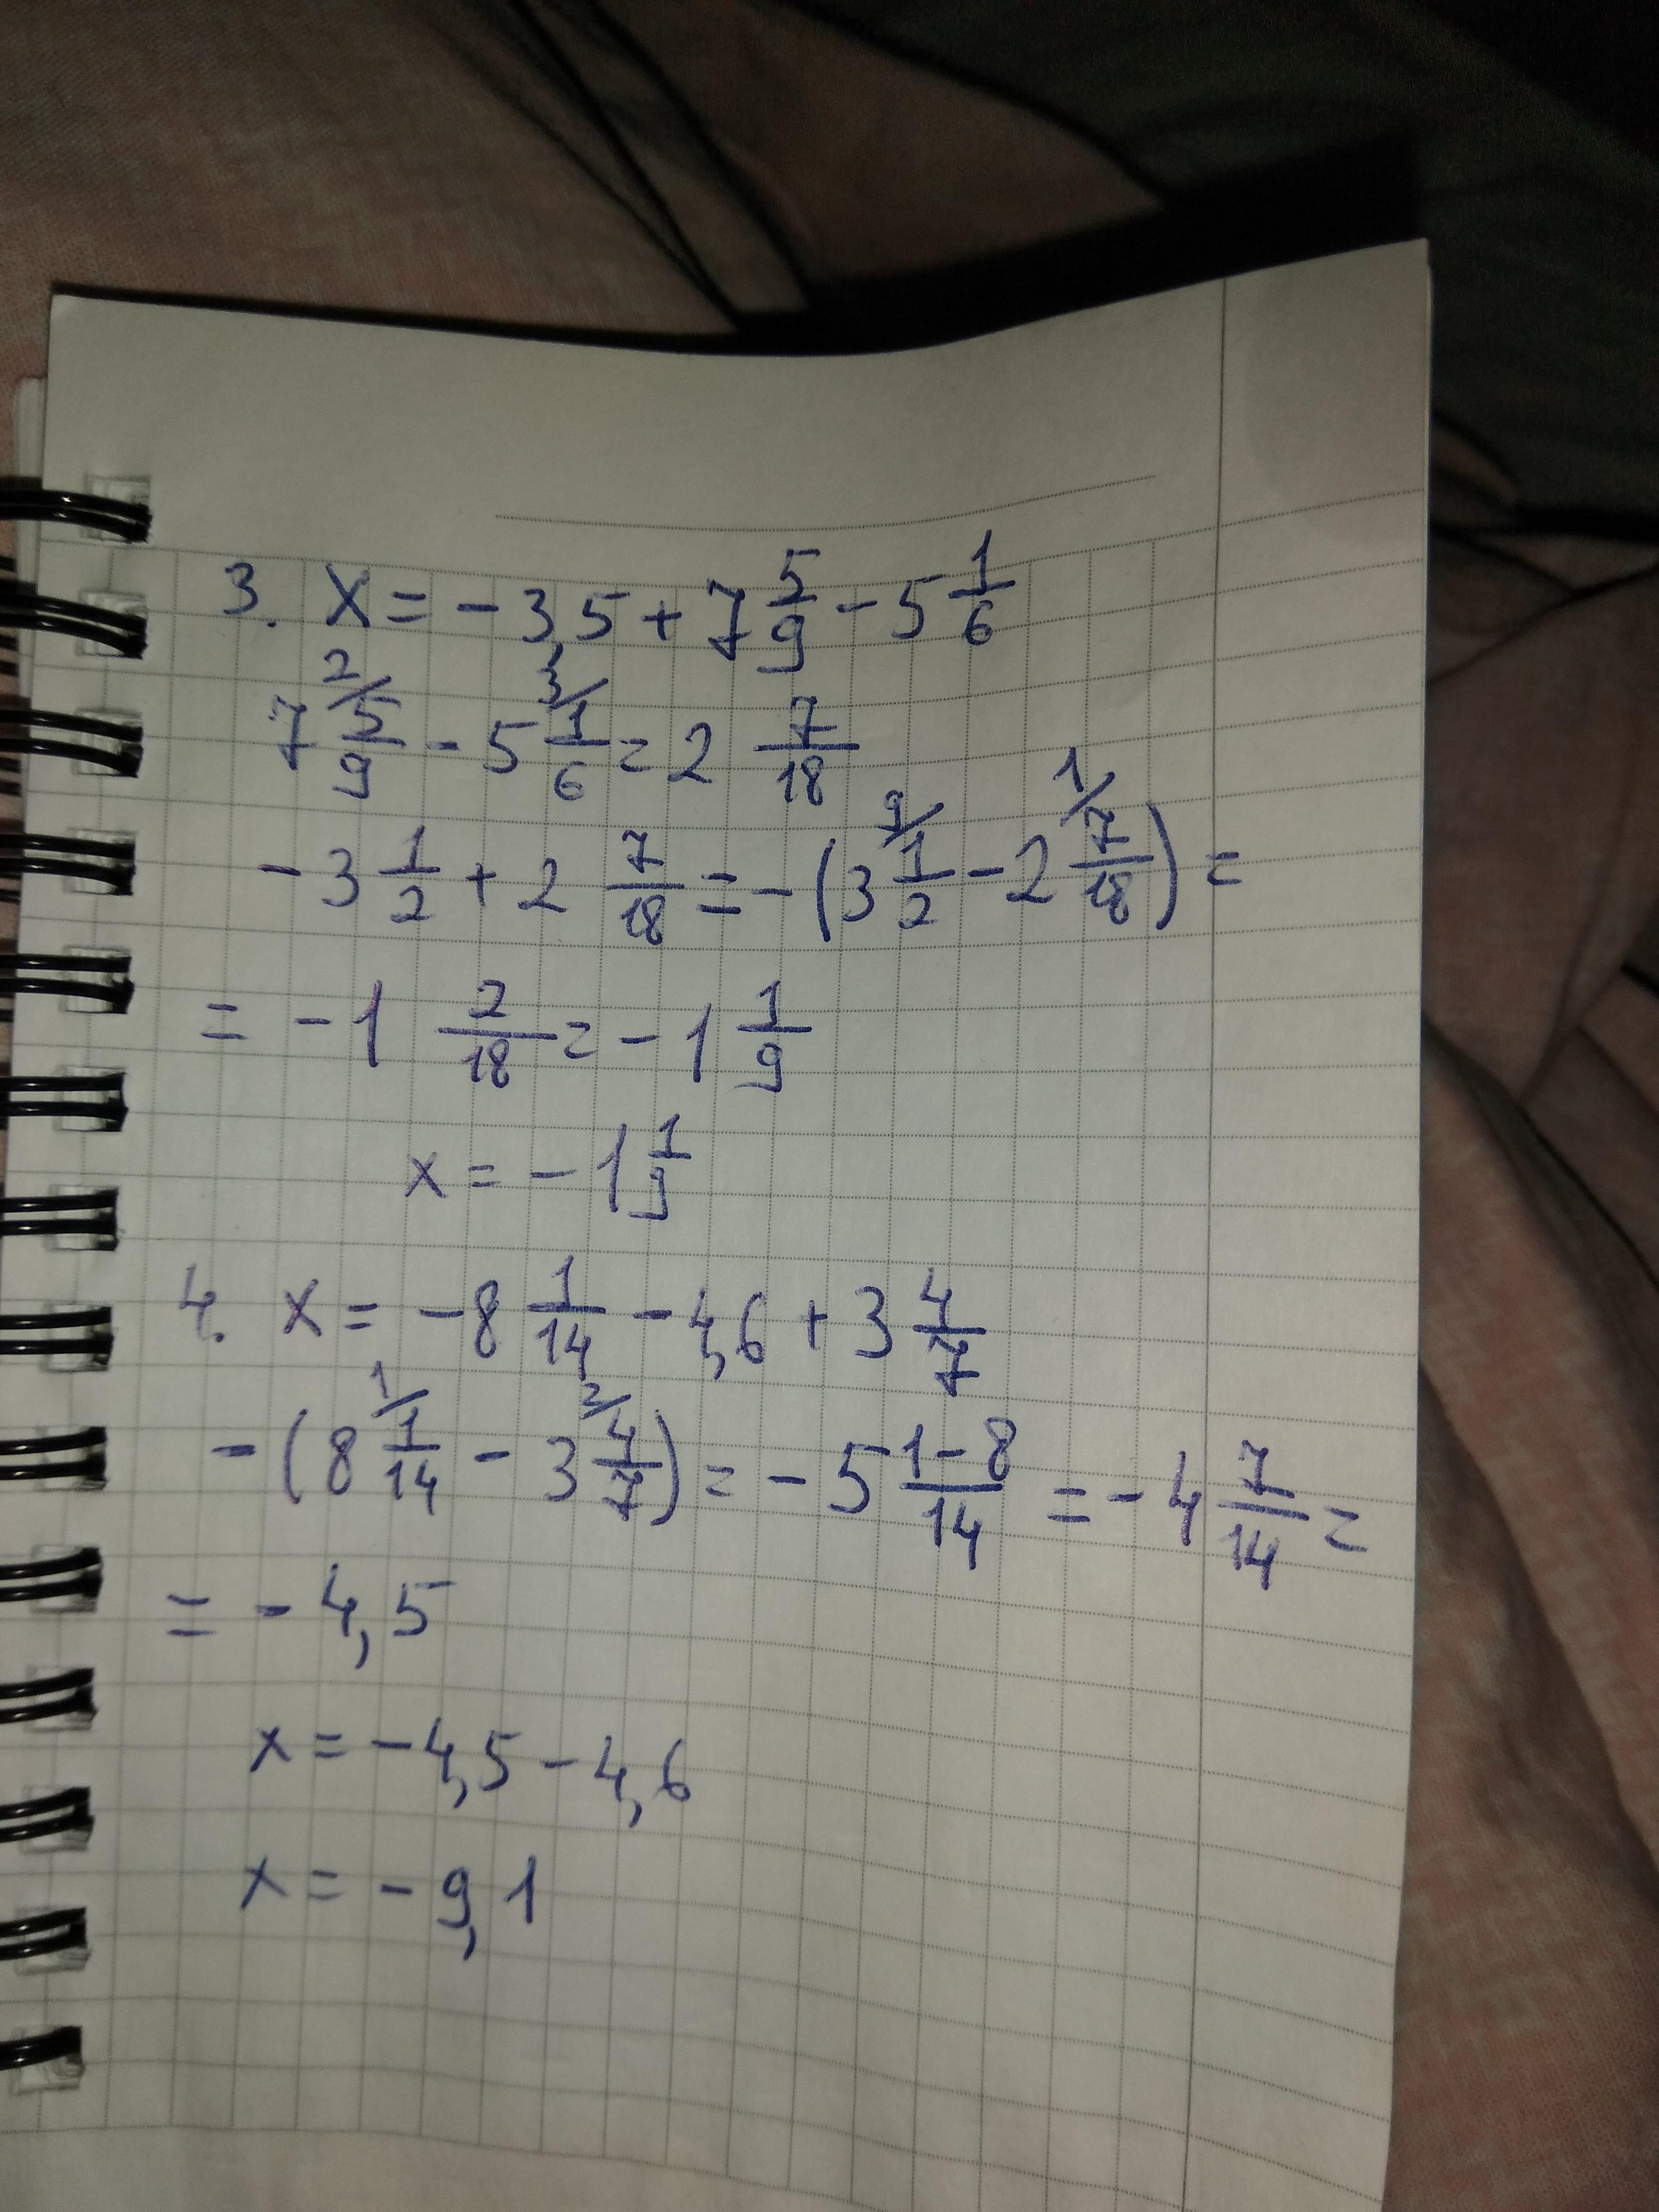 3. x = -3,5 + 7 5/9 - 5 1/6
7 5/9 2/ - 5 1/6 3/ = 2 7/18
-3 1/2 + 2 7/18 = -(3 1/2 9/ - 2 7/18 1/) =
= -1 2/18 = -1 1/9
x = -1 1/9
4. x = -8 1/14 - 4,6 + 3 4/7
-(8 1/14 1/ - 3 4/7 2/) = -5 1-8/14 = -4 7/14 =
= -4,5
x = -4,5 - 4,6
x = -9,1